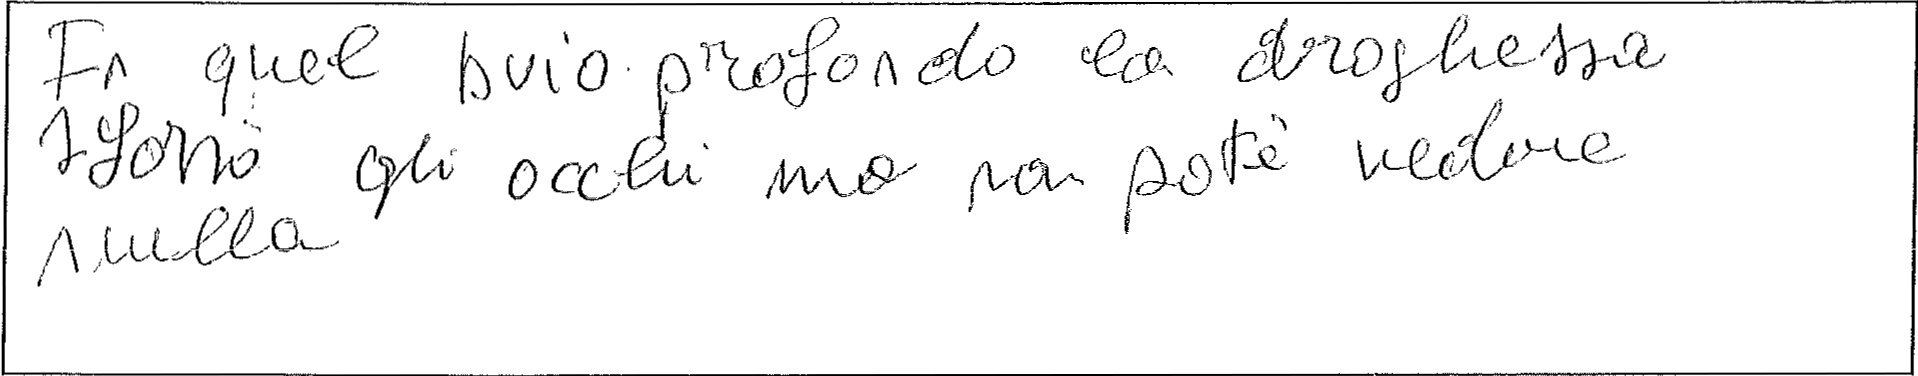 In quel buio profondo la droghessa
sforzò gli occhi ma non potè vedere
nulla